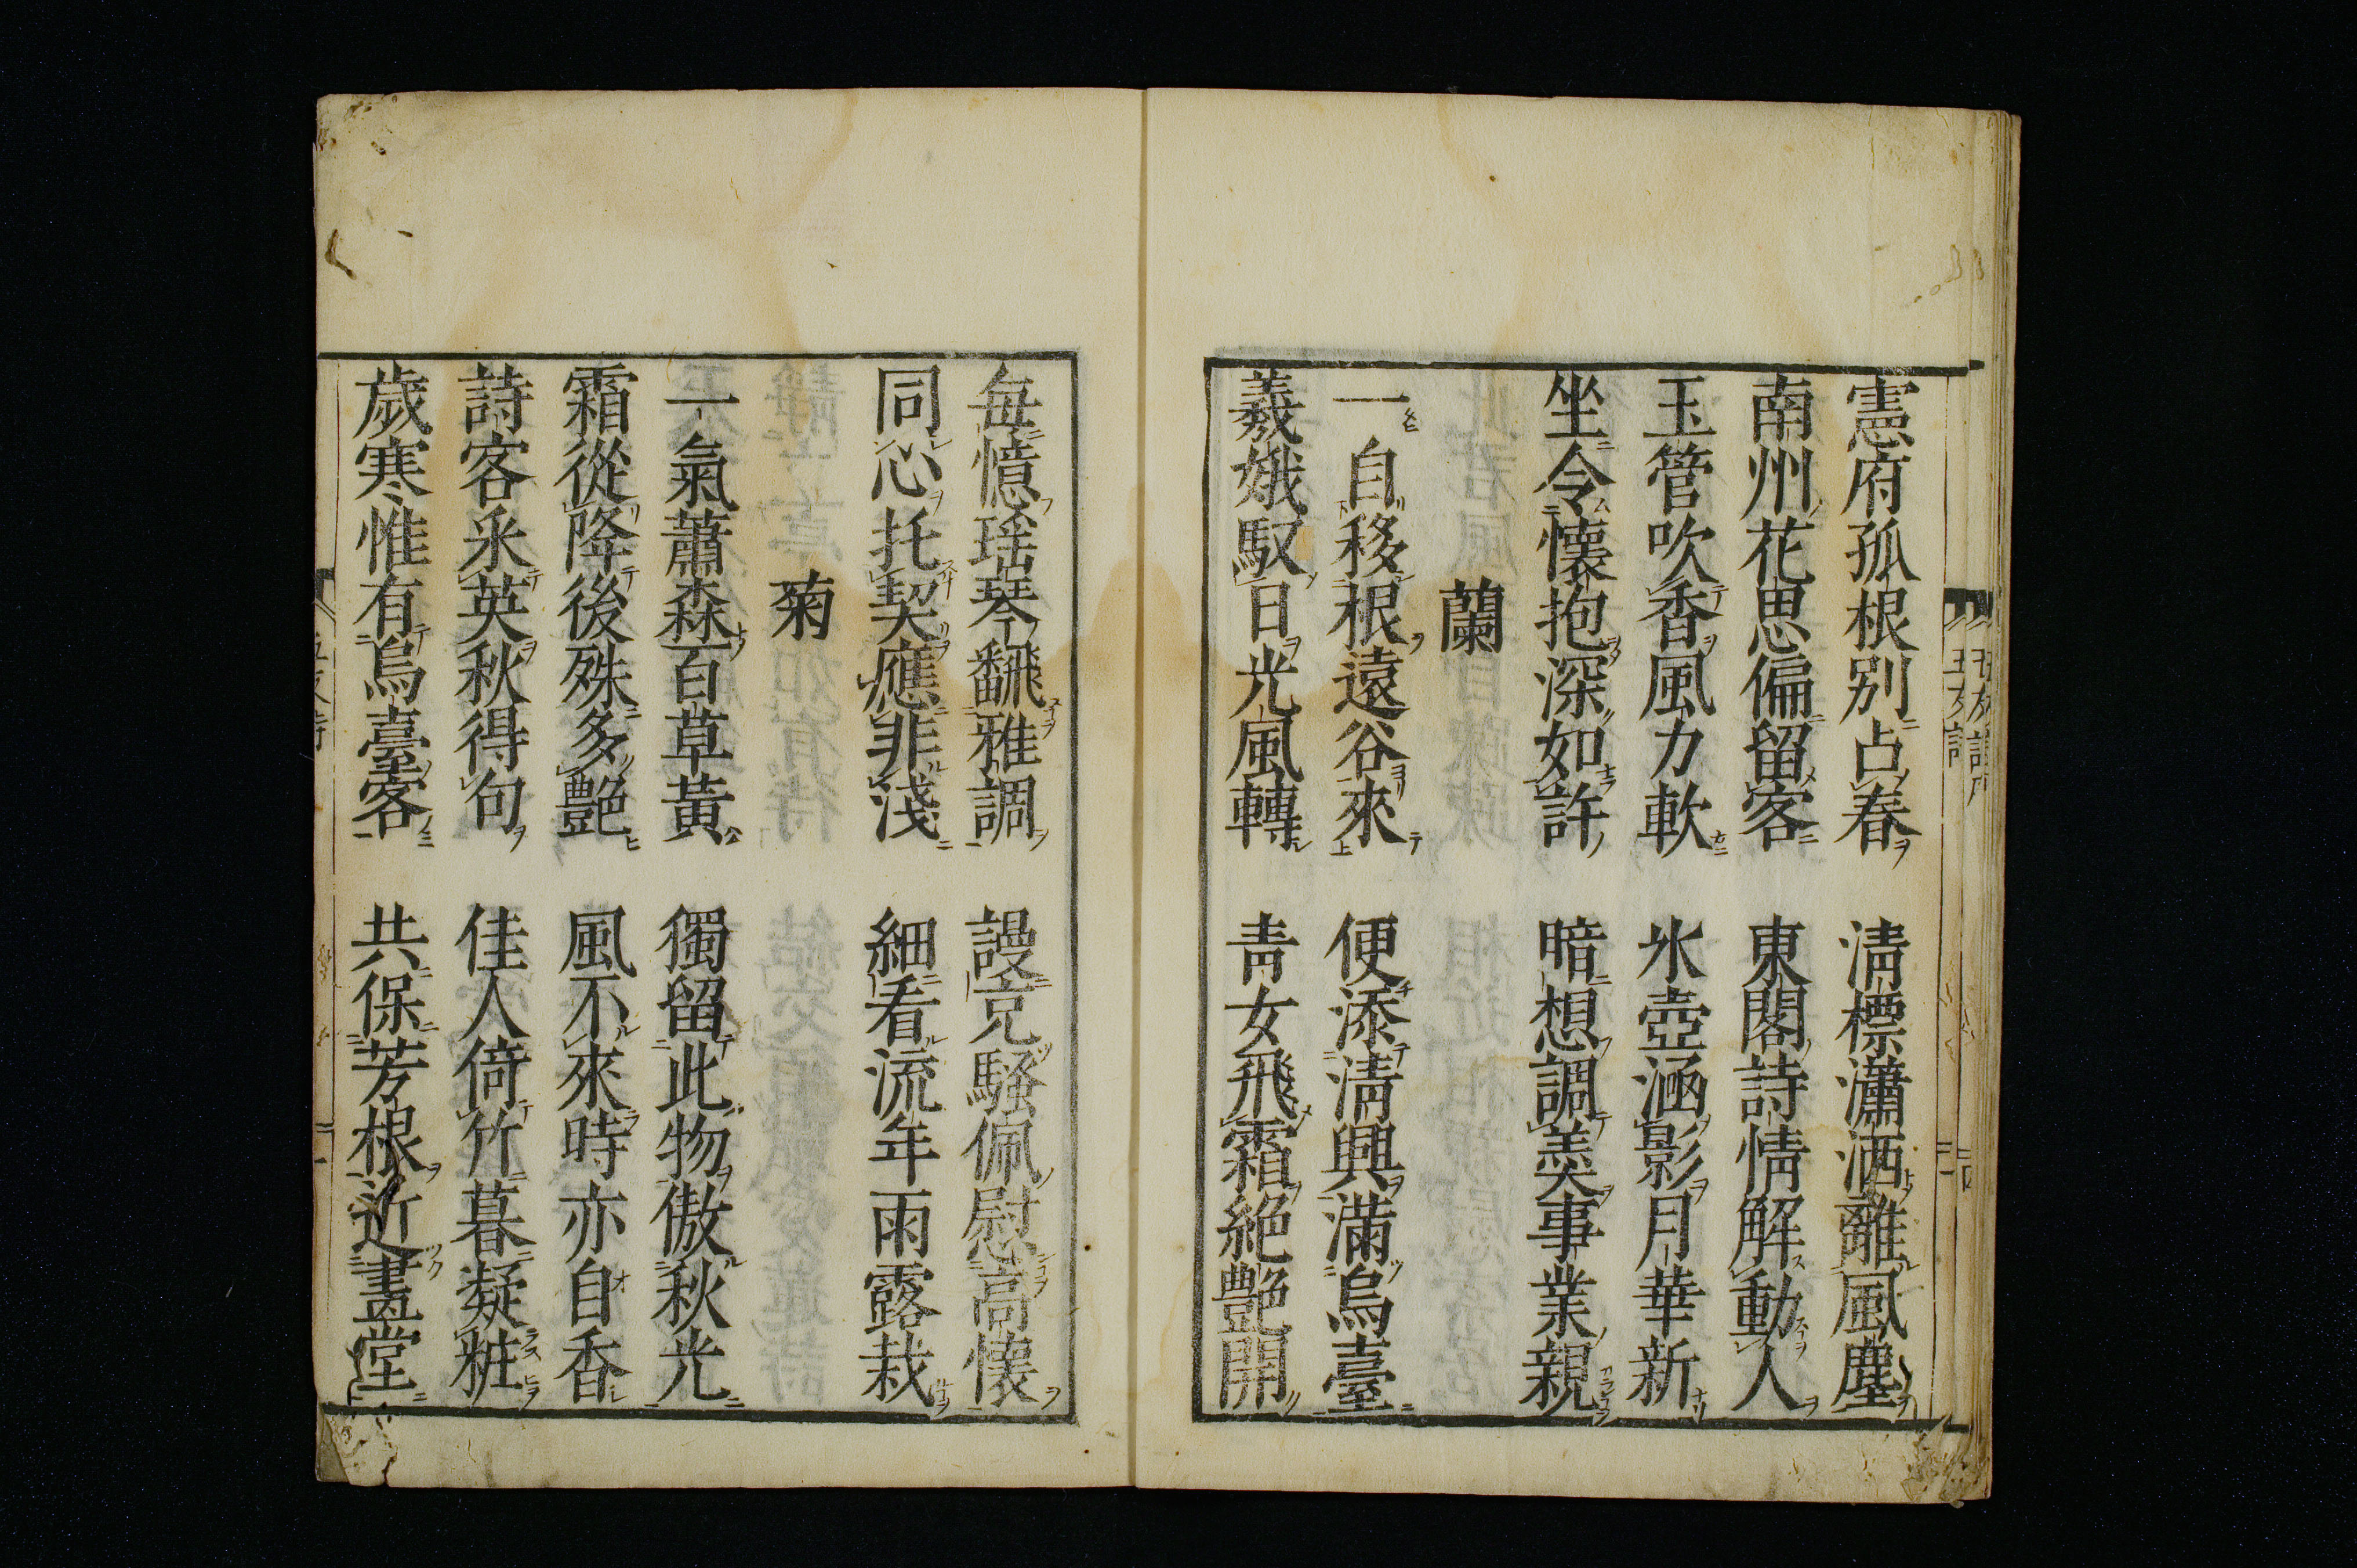 憲府孤根別占春　清標瀟洒離風塵
南州花思偏留客　東閣詩情解動人
玉管吹香風力軟　氷壺涵影月華新
坐令懷抱深如許　暗想調羹事業親
蘭
一自移根遠谷來　便添淸興滿烏臺
羲娥馭日光風轉　青女飛霜絶艷開
每憶瑤琴翻雅調　謾言騷佩慰高懷
同心托契應非淺　細看流年雨露栽
菊
一氣蕭森百草黃　獨留此物傲秋光
霜從降後殊多艷　風不來時亦自香
詩客采英秋得句　佳人倚竹暮凝粧
歲寒惟有烏臺客　共保芳根近畫堂